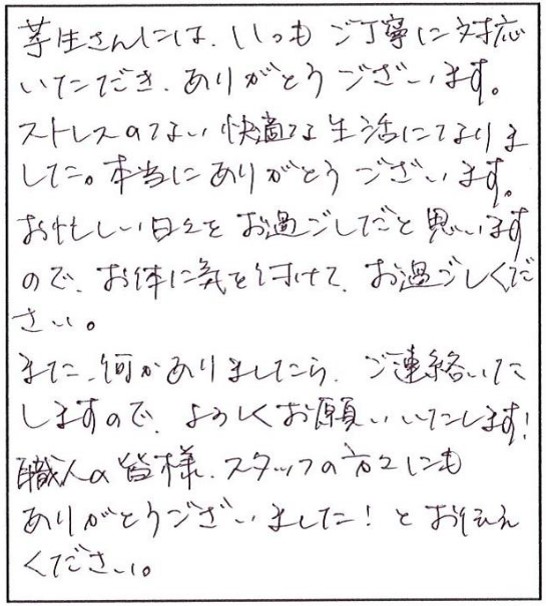 芋生さんには、いつも ご丁寧に対応
いただき、ありがとう ございます。
ストレスのない 快適な 生活になりま
した。本当に ありがとう ございます。
お忙しい日々を お過ごしだと 思います
ので、お体に気を付けて、お過ごしくだ
さい。
また、何かありましたら、ご連絡いた
しますので、よろしくお願いいたします!
職人の皆様、スタッフの方々にも
ありがとうございました! と お伝え
ください。